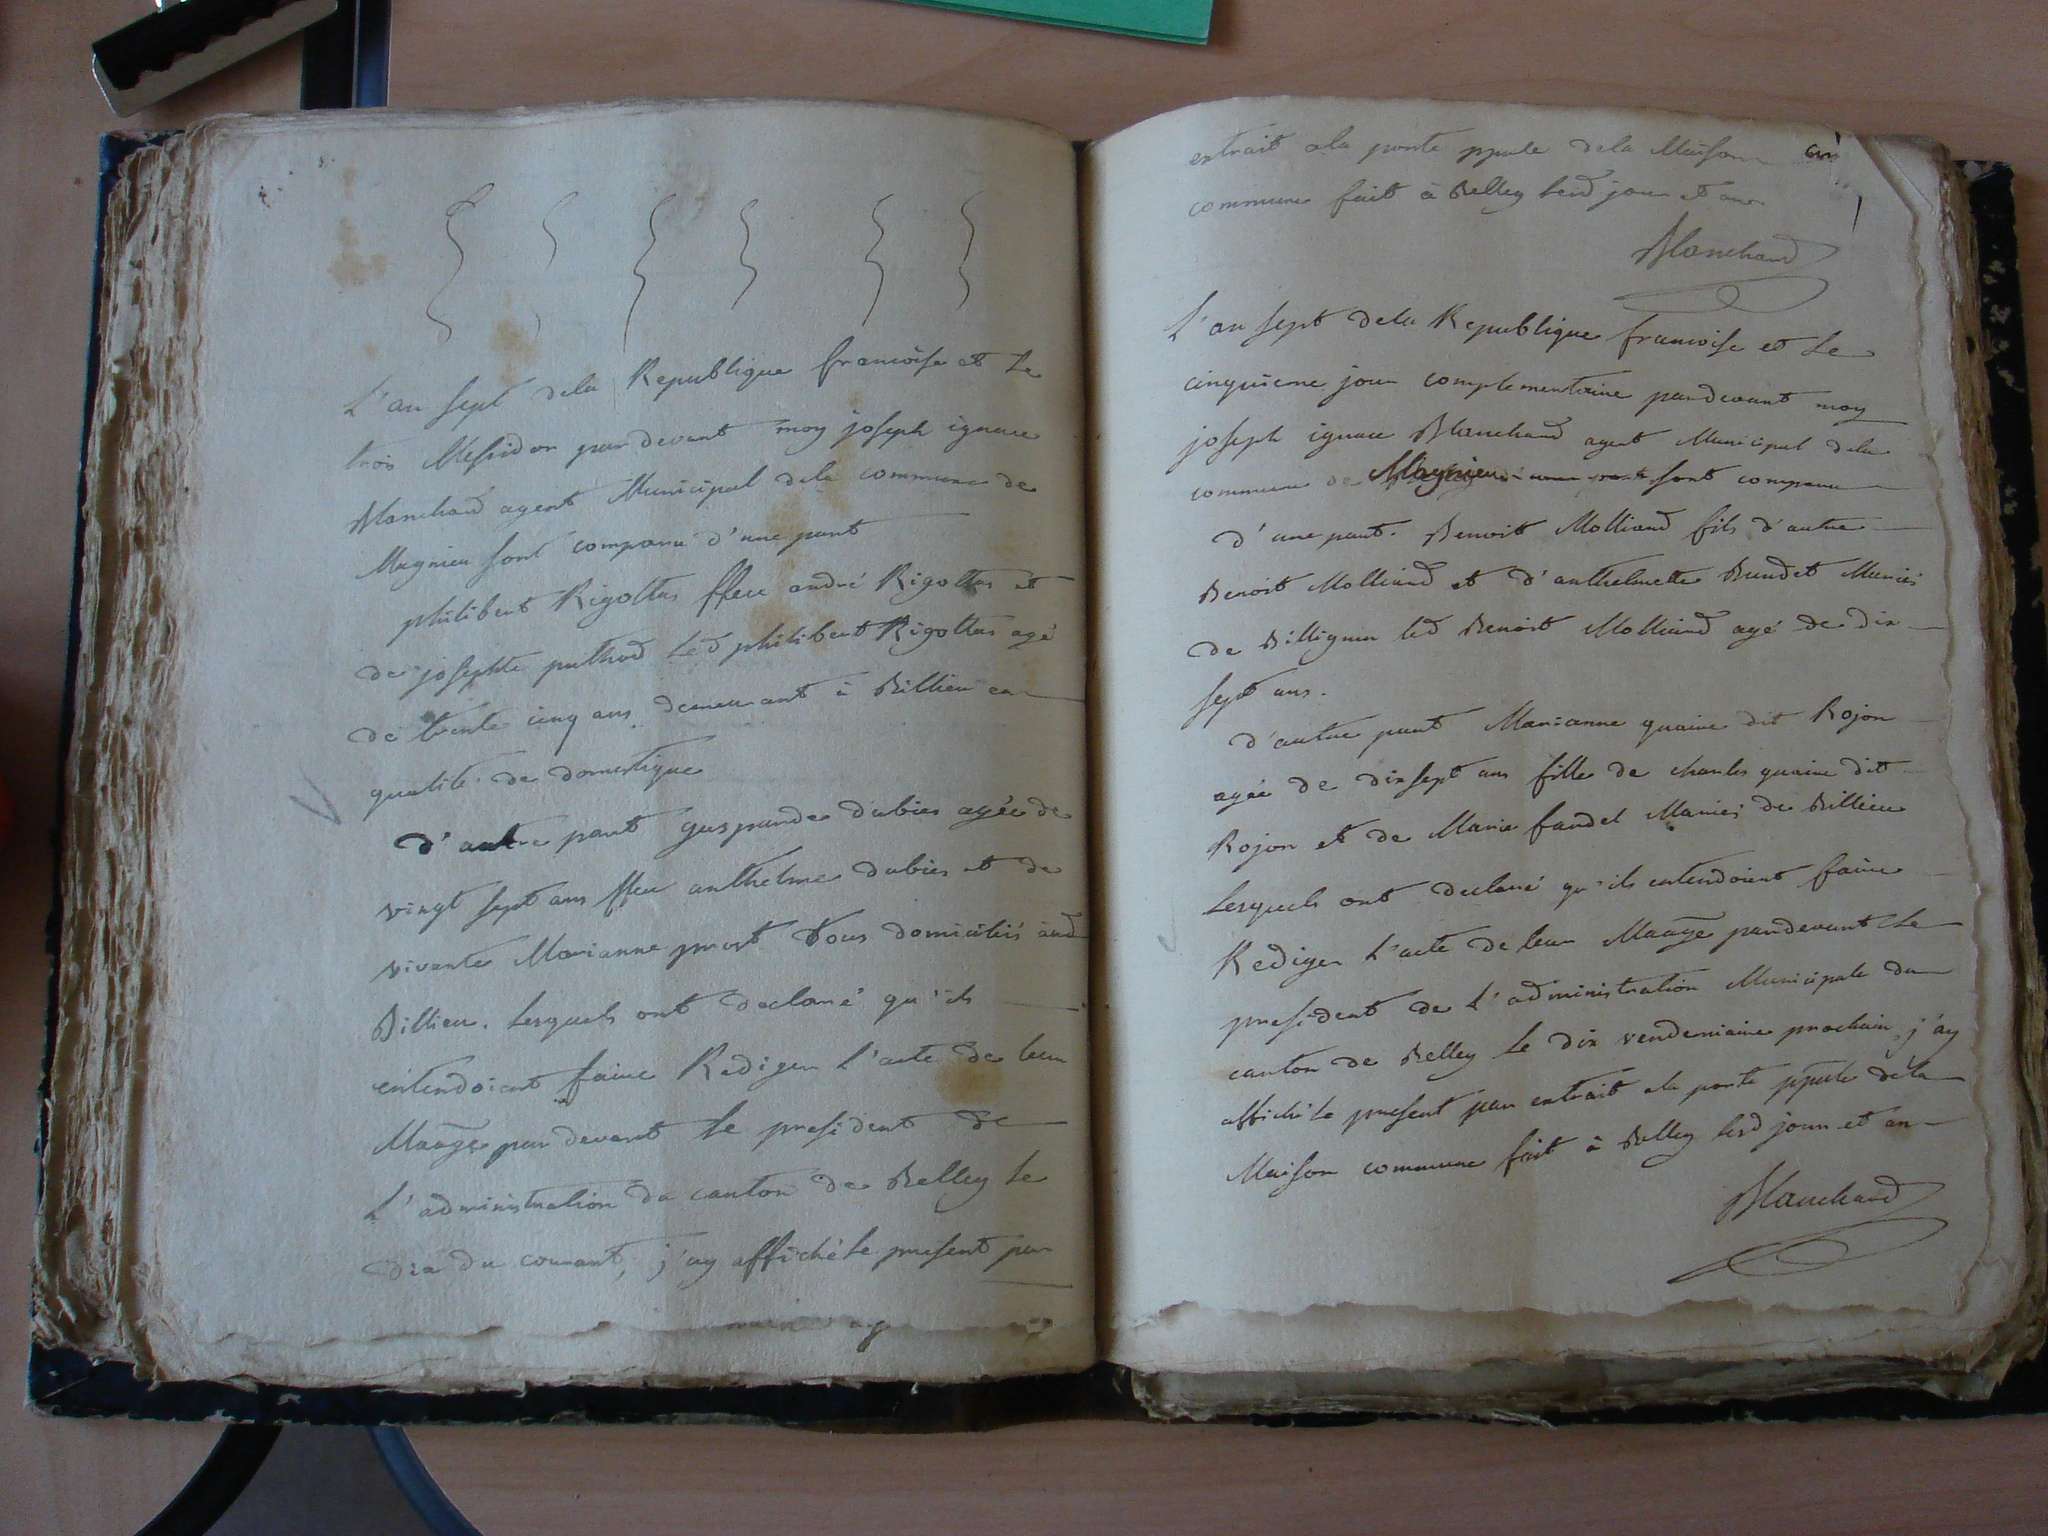 L'an sept dela Republique francoise et le
trois Messidor pardevant moy joseph ignace
Blanchard agent Municipal dela commune de
Magnieu sont comparu d'une part
philibert Rigottas ffeu andré Rigottas et
de josephte puthod led philibert Rigottas agé
de trente cinq ans demeurant à Billieu en
qualité de domestique
d'autre part gasparde dubies agée de
vingt sept ans ffeu anthelme dubies et de
vivante Marianne prost tous domiciliés aud
Billieu. lesquels ont declaré qu'ils
entendoient faire Rediger l'acte de leur
Maage pardevant le president de
L'administration du canton de Belley le
dix du courant, j'ay affiché le present par
extrait ala porte pple dela Maison
commune fait à Belley lesd jour et an
Blanchard
L'an sept dela Republique francoise et le
cinquieme jour complementaire pardevant moy
joseph ignace Blanchard agent Municipal dela
commune de Magnieu sont comparu
d'une part. Benoit Molliand fils d'autre
Benoit Molliand et d'anthelmette Burdet Mariés
de Billignin led Benoit Molliand agé de dix
sept ans.
d'autre part Marianne quaire dit Rojon
agée de dixsept ans fille de charles quaire dit
Rojon et de Marie fardel Mariés de Billieu
lesquels ont declaré qu'ils entendoient faire
Rediger l'acte de leur Maage pardevant le
president de L'administration Municipale du
canton de Belley le dix vendemiaire prochain, j'ay
affiché le present par extrait ala porte pple dela
Maison commune fait à Belley lesd jour et an
Blanchard